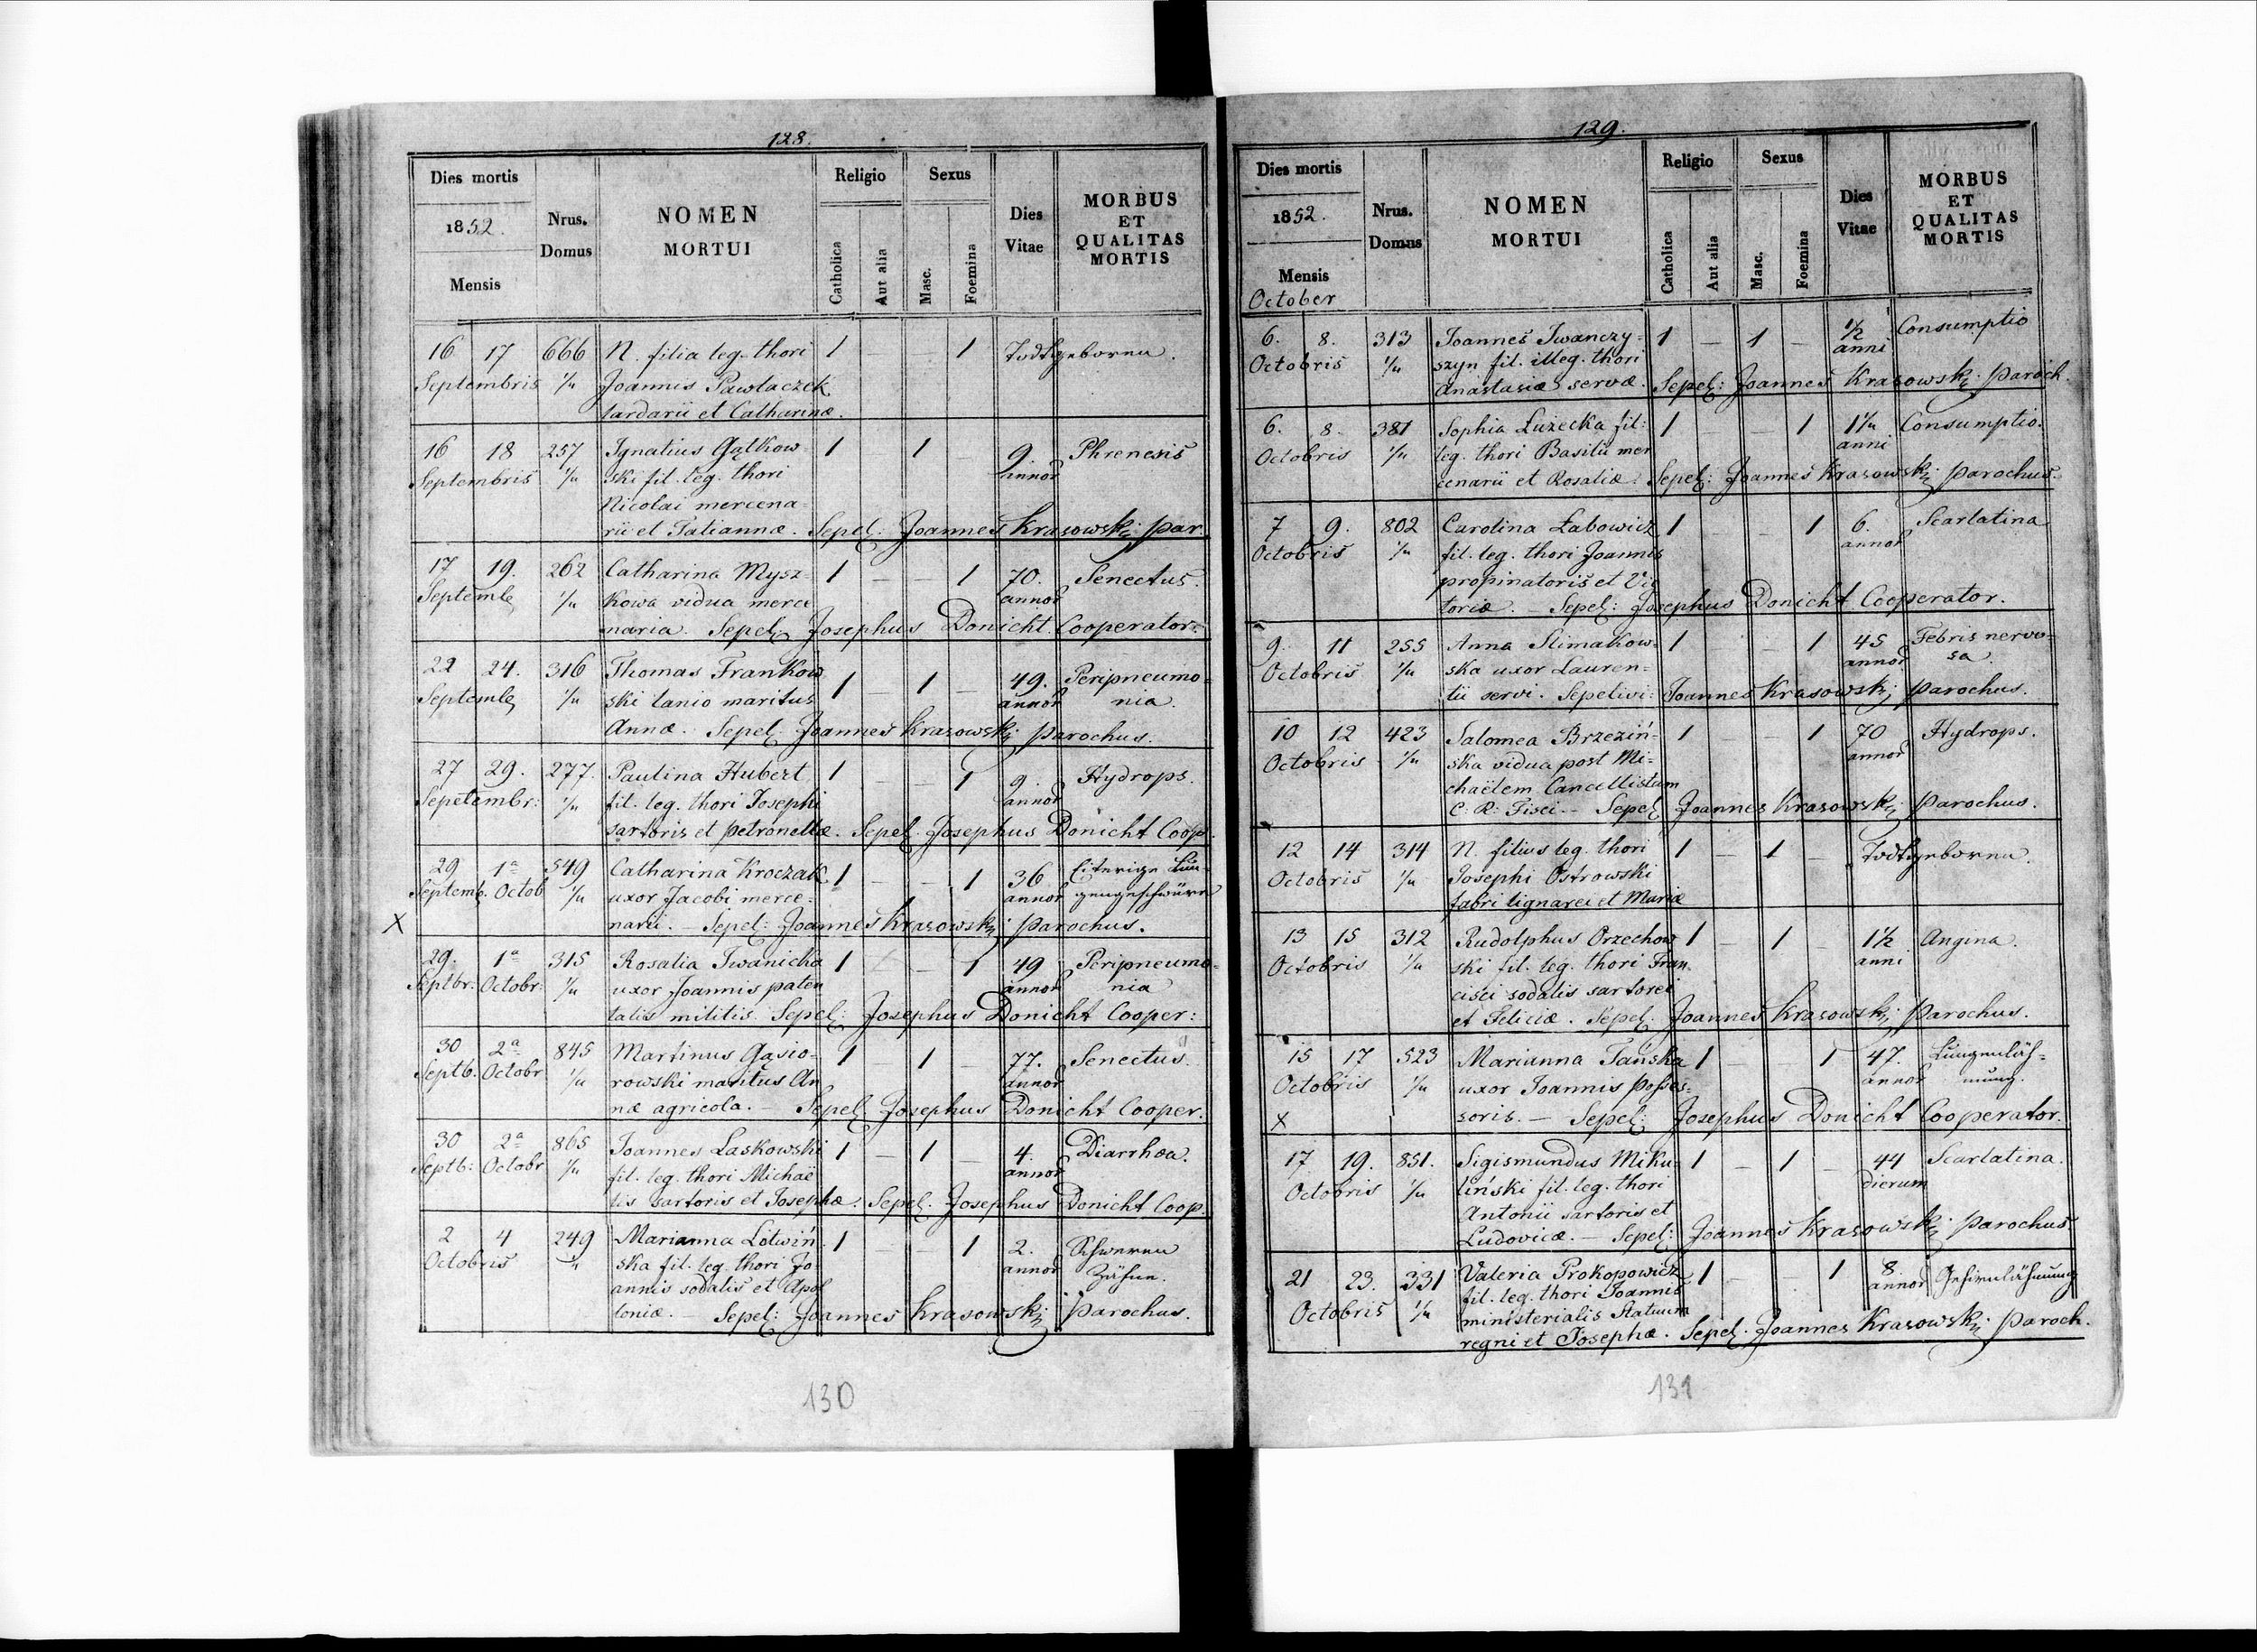 128.
Dies mortis
1852.
Mensis
Nrus. Domus
NOMEN MORTUI
Religio
Catholica
Aut alia
Sexus
Masc.
Foemina
Dies Vitae
MORBUS ET QUALITAS MORTIS
16 17 666 N. filia leg. thori 1 – 1 Todtgeboren.
Septembris 1/n Joannis Pawlaczek
tardarii et Catharinæ.
16 18 257 Ignatius Gątkow- 1 1 – 9. Phrenesis
Septembris 1/n ski fil. leg. thori annor
Nicolai mercena-
rii et Tatiannæ. Sepel: Joannes Krasowski par.
17 19. 262 Catharina Mysz- 1 – – 1 70. Senectus.
Septemb 1/n kowa vidua merce annor
naria. Sepel: Josephus Donicht Cooperator.
22 24. 316 Thomas Frankow 1 1 – 49. Peripneumo-
Septemb 1/n ski lanio maritus annor nia.
Annæ. Sepel: Joannes Krasowski parochus.
27 29. 277. Paulina Hubert 1 – 1 9. Hydrops.
Sepetembr: 1/n fil. leg. thori Josephi annor
sartoris et petronellæ. Sepel: Josephus Donicht Coop.
29 1a 549 Catharina Kroczak 1 – – 1 36 Eiterige Lun-
Septemb. Octob 1/n uxor Jacobi merce- annor gengeschwüre
X narii. – Sepel: Joannes Krasowski parochus.
29. 1a 315 Rosalia Iwanicka 1 – – 1 49 Peripneumo-
Septbr: Octobr: 1/n uxor Joannis paten annor nia
talis militis. Sepel: Josephus Donicht Cooper:
30 2a 845 Martinus Gąsio- 1 1 – 77. Senectus.
Septb. Octobr 1/n rowski maritus An annor
næ agricola. – Sepel: Josephus Donicht Cooper.
30 2a 865 Joannes Laskowski 1 – 1 – 4. Diarrhœa.
Septb: Octobr 1/n fil. leg. thori Michaë annor
lis sartoris et Josephæ. Sepel: Josephus Donicht Coop.
2 4 249 Marianna Lotwiń- 1 – – 1 2. Schweren
Octobris 1/n ska fil. leg. thori Jo- annor Zähne.
annis sodalis et Apol
loniæ. – Sepel: Joannes Krasowski parochus.
130
129.
Dies mortis
1852.
Mensis
October
Nrus. Domus
NOMEN MORTUI
Religio
Catholica
Aut alia
Sexus
Masc.
Foemina
Dies Vitae
MORBUS ET QUALITAS MORTIS
6. 8. 313 Joannes Iwanczy- 1 – 1 – 1/2 Consumptio
Octobris 1/n szyn fil. illeg. thori anni
Anastasiæ servæ. Sepel: Joannes Krasowski paroch.
6. 8. 381 Sophia Luzecka fil: 1 – 1 1 1/n Consumptio.
Octobris 1/n leg. thori Basilii mer anni
cenarii et Rosaliæ. Sepel: Joannes Krasowski parochus.
7 9. 802 Carolina Łabowicz 1 1 6. Scarlatina
Octobris 1/n fil. leg. thori Joannis annor
propinatoris et Vic
toriæ. – Sepel: Josephus Donicht Cooperator.
9. 11 255 Anna Slimakow- 1 1 45 Febris nervo-
Octobris 1/n ska uxor Lauren- annor sa.
tii servi. Sepelivi: Joannes Krasowski parochus.
10 12 423 Salomea Brzeziń- 1 – 1 70 Hydrops.
Octobris 1/n ska vidua post Mi- annor
chaëlem Cancellistam
C. R. Fisci. – Sepel: Joannes Krasowski parochus.
12 14 314 N. filius leg. thori 1 – 1 – Todtgeboren.
Octobris 1/n Josephi Ostrowski
fabri lignarei et Mariæ
13 15 312 Rudolphus Orzechow 1 – 1 – 1 1/2 Angina.
Octobris 1/n ski fil. leg. thori Fran- anni
cisci sodalis sartorei
et Feliciæ. Sepel: Joannes Krasowski parochus.
15 17 523 Marianna Tańska 1 – 1 47. Lungenläh-
Octobris 1/n uxor Joannis posses- annor mung.
X soris. – Sepel: Josephus Donicht Cooperator.
17 19. 851. Sigismundus Miku- 1 – 1 – 44 Scarlatina.
Octobris 1/n liński fil. leg. thori dierum
Antonii sartoris et
Ludovicæ. – Sepel: Joannes Krasowski parochus
21 23. 331 Valeria Prokopowicz 1 – 1 8. Gehirnlähmung
Octobris 1/n fil. leg. thori Joannis annor
ministerialis Statuum
regni et Josephæ. Sepel: Joannes Krasowski paroch.
131